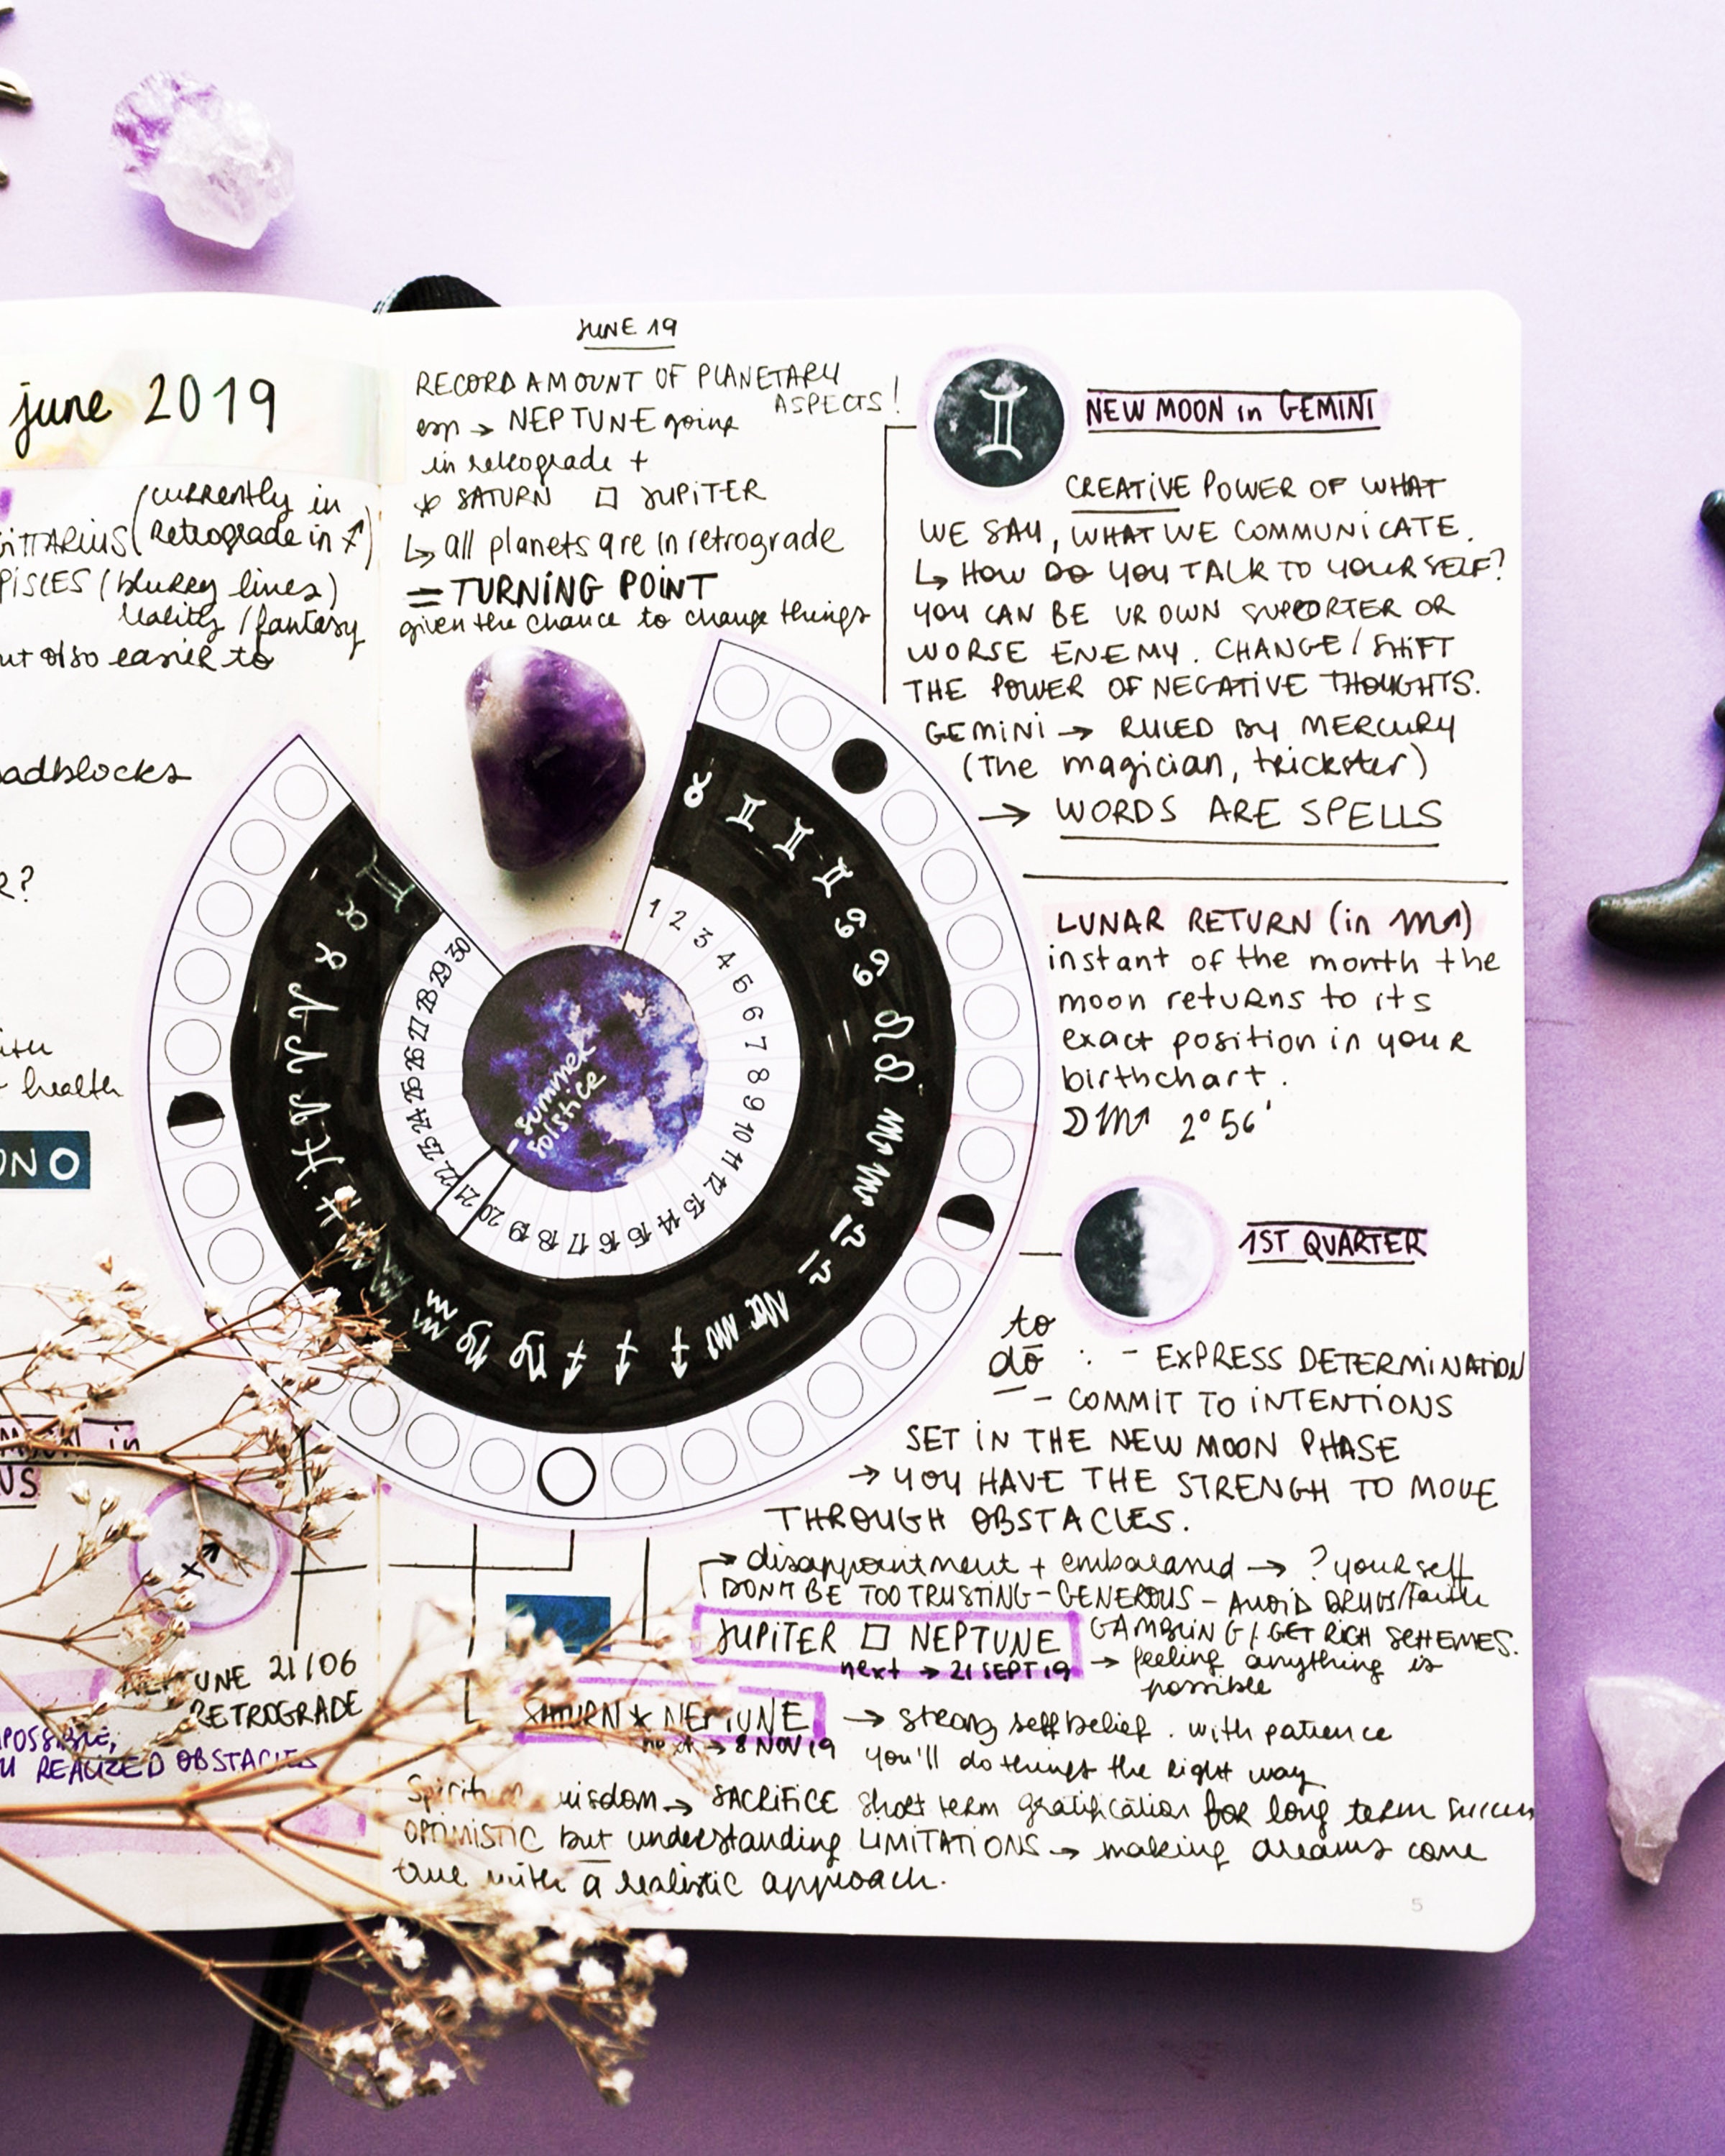 june 2019
(currently in
Retrograde in ♐)
PISCES (blurry lines)
reality / fantasy
also easier to
R?
health
NO
in
US
UNE 21/06
RETROGRADE
REALIZED OBSTACLES
JUNE 19
RECORD AMOUNT OF PLANETARY
ASPECTS!
esp → NEPTUNE going
in retrograde +
⚹ SATURN □ JUPITER
↳ all planets are in retrograde
= TURNING POINT
given the chance to change things
♉ ♊ ♊ ♊ ♋ ♋ ♌ ♌ ♍ ♍ ♎ ♎ ♏ ♏ ♐ ♐ ♐ ♑ ♑ ♒ ♒ ♓ ♓ ♈ ♈ ♈ ♉ ♉ ♊
1 2 3 4 5 6 7 8 9 10 11 12 13 14 15 16 17 18 19 20 21 22 23 24 25 26 27 28 29 30
- summer
solstice
♊
NEW MOON in GEMINI
CREATIVE POWER OF WHAT
WE SAY, WHAT WE COMMUNICATE.
↳ HOW DO YOU TALK TO YOURSELF?
YOU CAN BE UR OWN SUPPORTER OR
WORSE ENEMY. CHANGE / SHIFT
THE POWER OF NEGATIVE THOUGHTS.
GEMINI → RULED BY MERCURY
(The magician, trickster)
→ WORDS ARE SPELLS
LUNAR RETURN (in ♏)
instant of the month the
moon returns to its
exact position in your
birthchart.
☽ ♏ 2°56'
1ST QUARTER
to
do : - EXPRESS DETERMINATION
- COMMIT TO INTENTIONS
SET IN THE NEW MOON PHASE
→ YOU HAVE THE STRENGH TO MOVE
THROUGH OBSTACLES.
→ disappointment + embarassed → ? yourself
DON'T BE TOO TRUSTING - GENEROUS - AVOID DRUGS/faith
JUPITER □ NEPTUNE GAMBLING / GET RICH SCHEMES.
next → 21 SEPT 19 → feeling anything is
possible
SATURN ⚹ NEPTUNE → strong self belief. with patience
next → 8 NOV 19 you'll do things the right way
Spiritual wisdom → SACRIFICE short term gratification for long term success
OPTIMISTIC but understanding LIMITATIONS → making dreams come
true with a realistic approach.
5